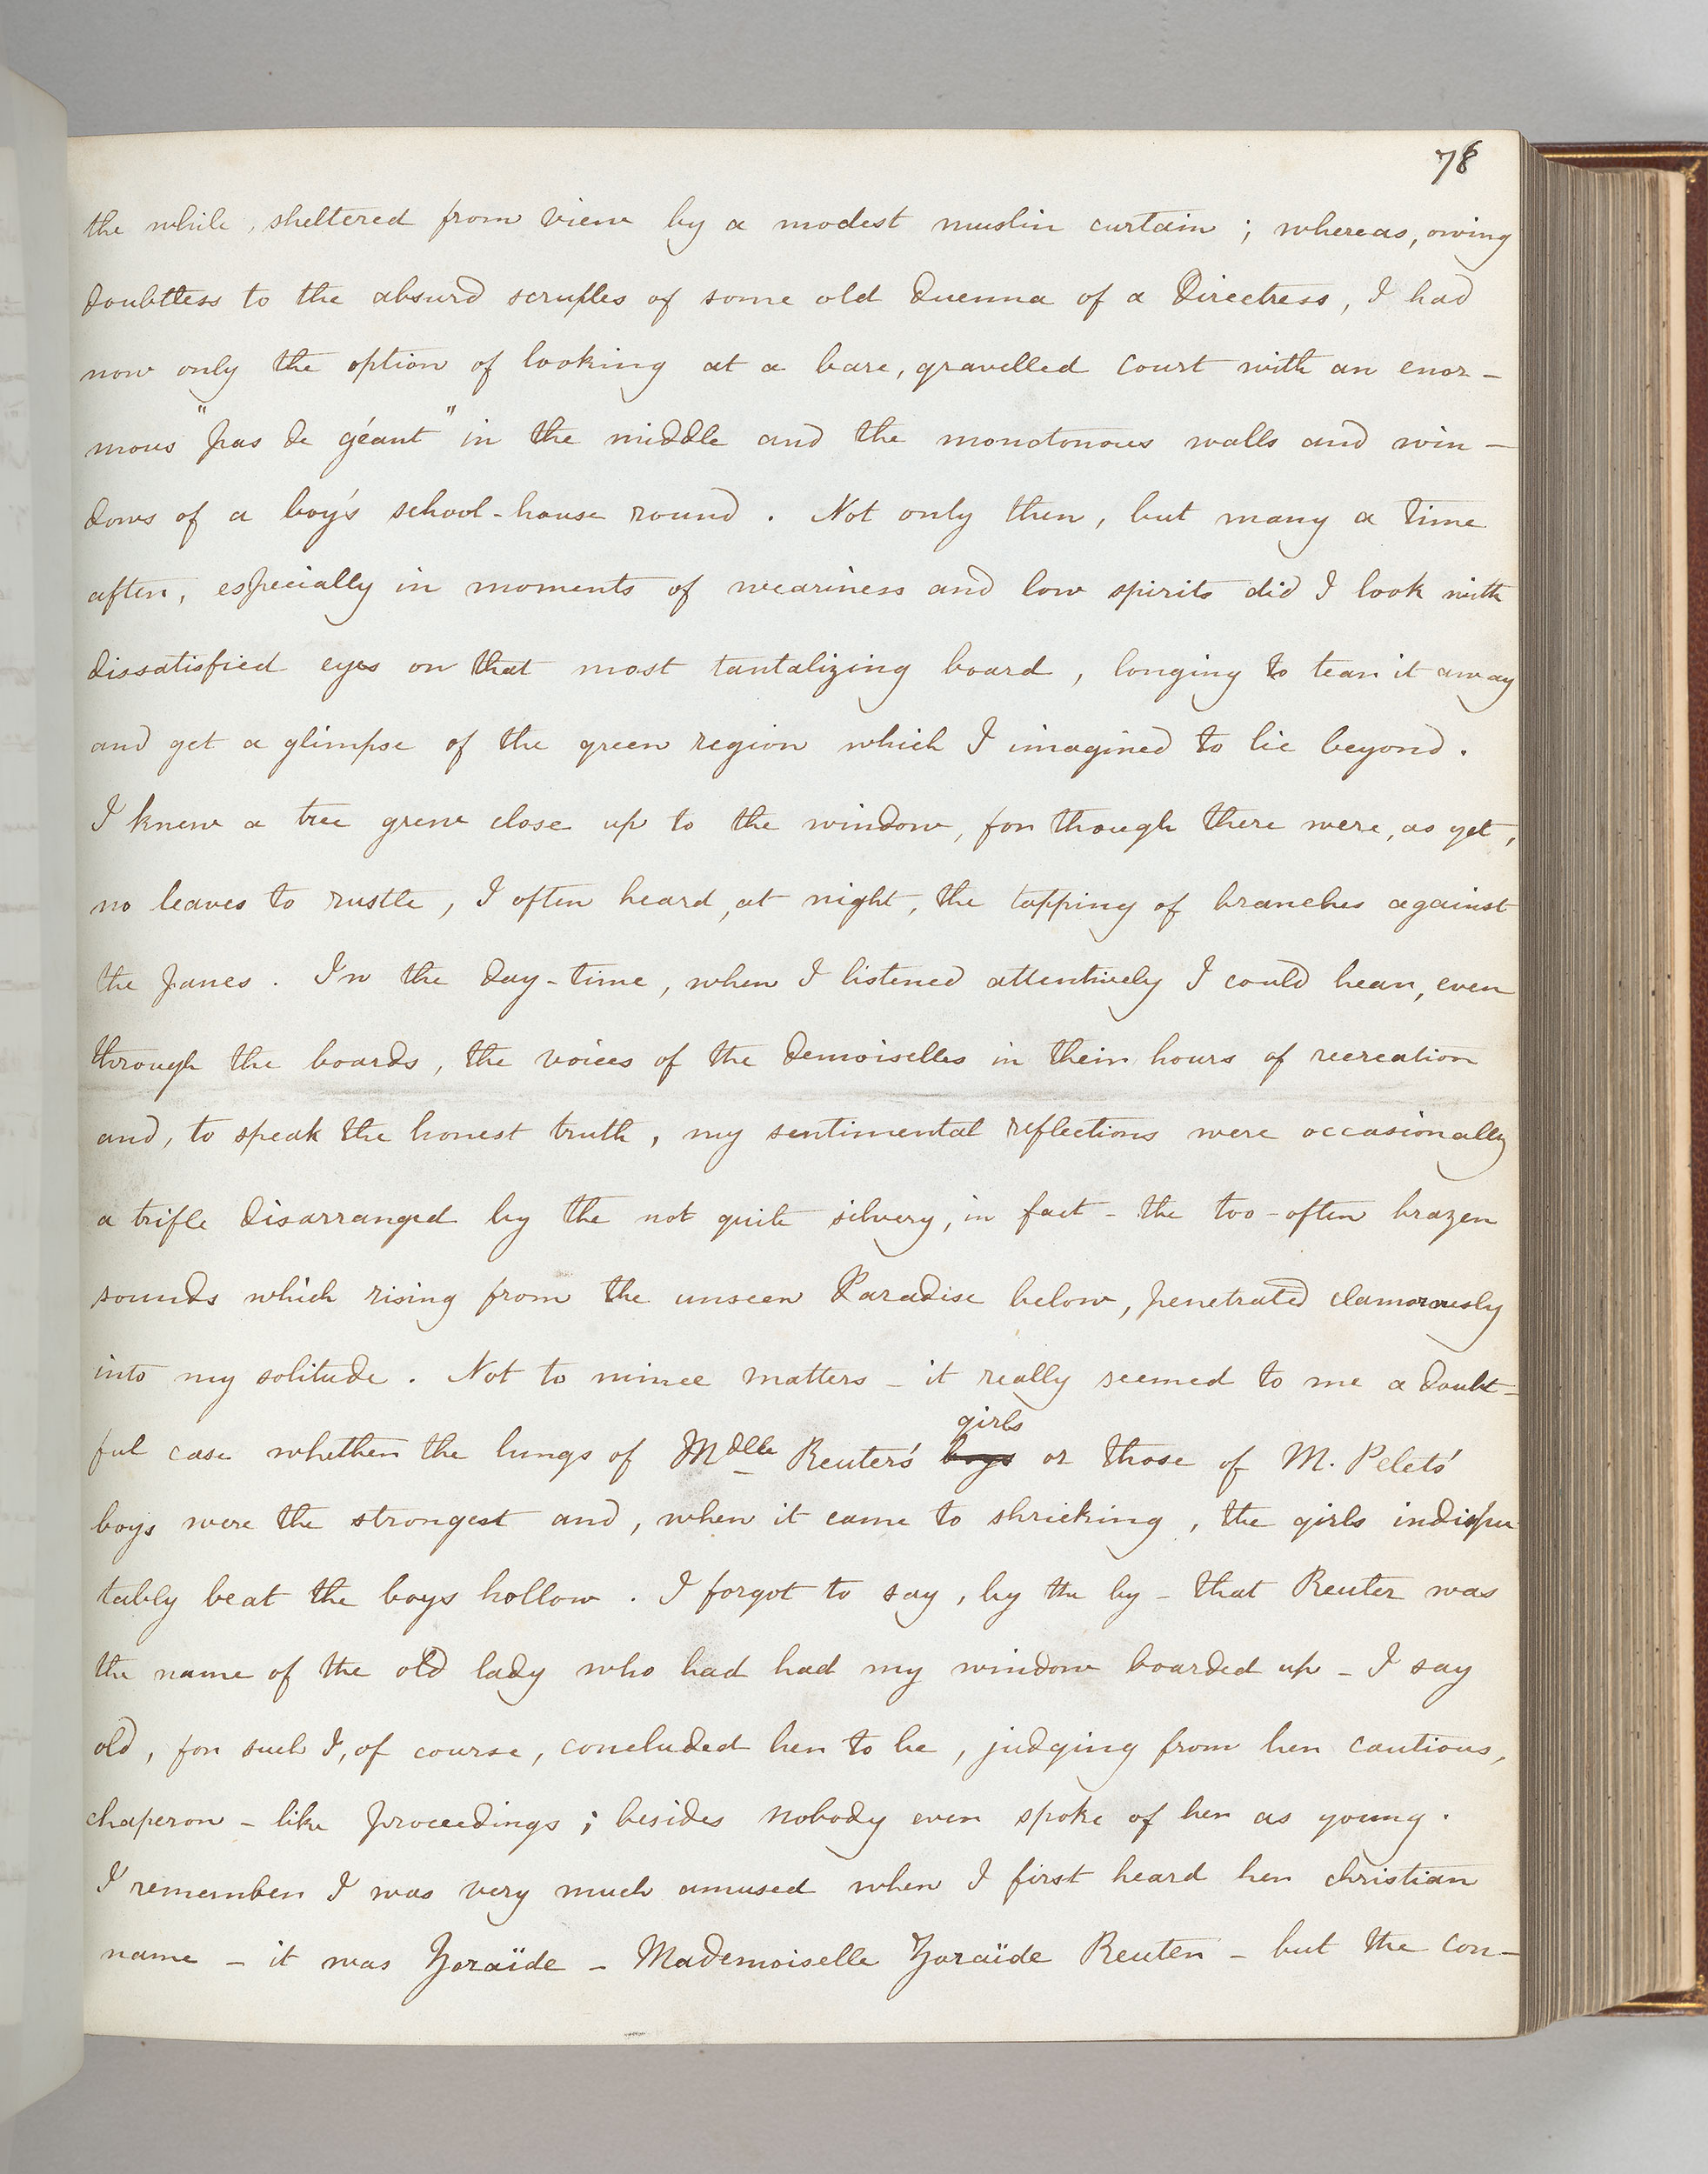 78
the while, sheltered from view by a modest muslin curtain ; whereas, owing
doubtless to the absurd scruples of some old duenna of a Directress, I had
now only the option of looking at a bare, gravelled court with an enor-
mous "pas de géant" in the middle and the monotonous walls and win-
dows of a boy's school-house round . Not only then, but many a time
after, especially in moments of weariness and low spirits did I look with
dissatisfied eyes on that most tantalizing board , longing to tear it away
and get a glimpse of the green region which I imagined to lie beyond .
I knew a tree grew close up to the window, for though there were, as yet,
no leaves to rustle, I often heard, at night, the tapping of branches against
the panes . In the day-time, when I listened attentively I could hear, even
through the boards, the voices of the demoiselles in their hours of recreation
and, to speak the honest truth, my sentimental reflections were occasionally
a trifle disarranged by the not quite silvery, in fact - the too-often brazen
sounds which rising from the unseen Paradise below, penetrated clamorously
into my solitude . Not to mince matters - it really seemed to me a doubt-
girls
ful case whether the lungs of Mdlle Reuter's boys or those of M. Pelets'
boys were the strongest and, when it came to shrieking , the girls indispu
tably beat the boys hollow . I forgot to say, by the by - that Reuter was
the name of the old lady who had had my window boarded up - I say
old, for such I, of course, concluded her to be, judging from her cautious,
chaperon-like proceedings ; besides nobody ever spoke of her as young .
I remember I was very much amused when I first heard her christian
name - it was Zoraïde - Mademoiselle Zoraïde Reuter - but the con-